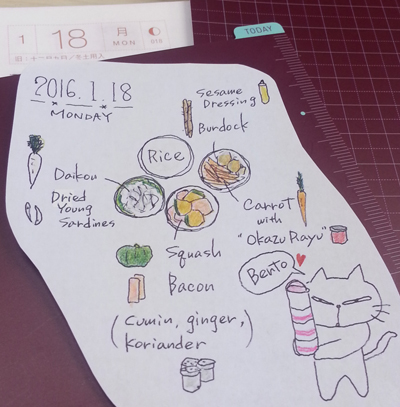 1
18
月
MON
018
TODAY
2016.1.18
MONDAY
Sesame
Dressing
Burdock
Rice
Daikou
Dried
Young
Sardines
Carrot
with
"Okazu Rayu"
Squash
Bacon
Bento
(cumin, ginger,
koriander)